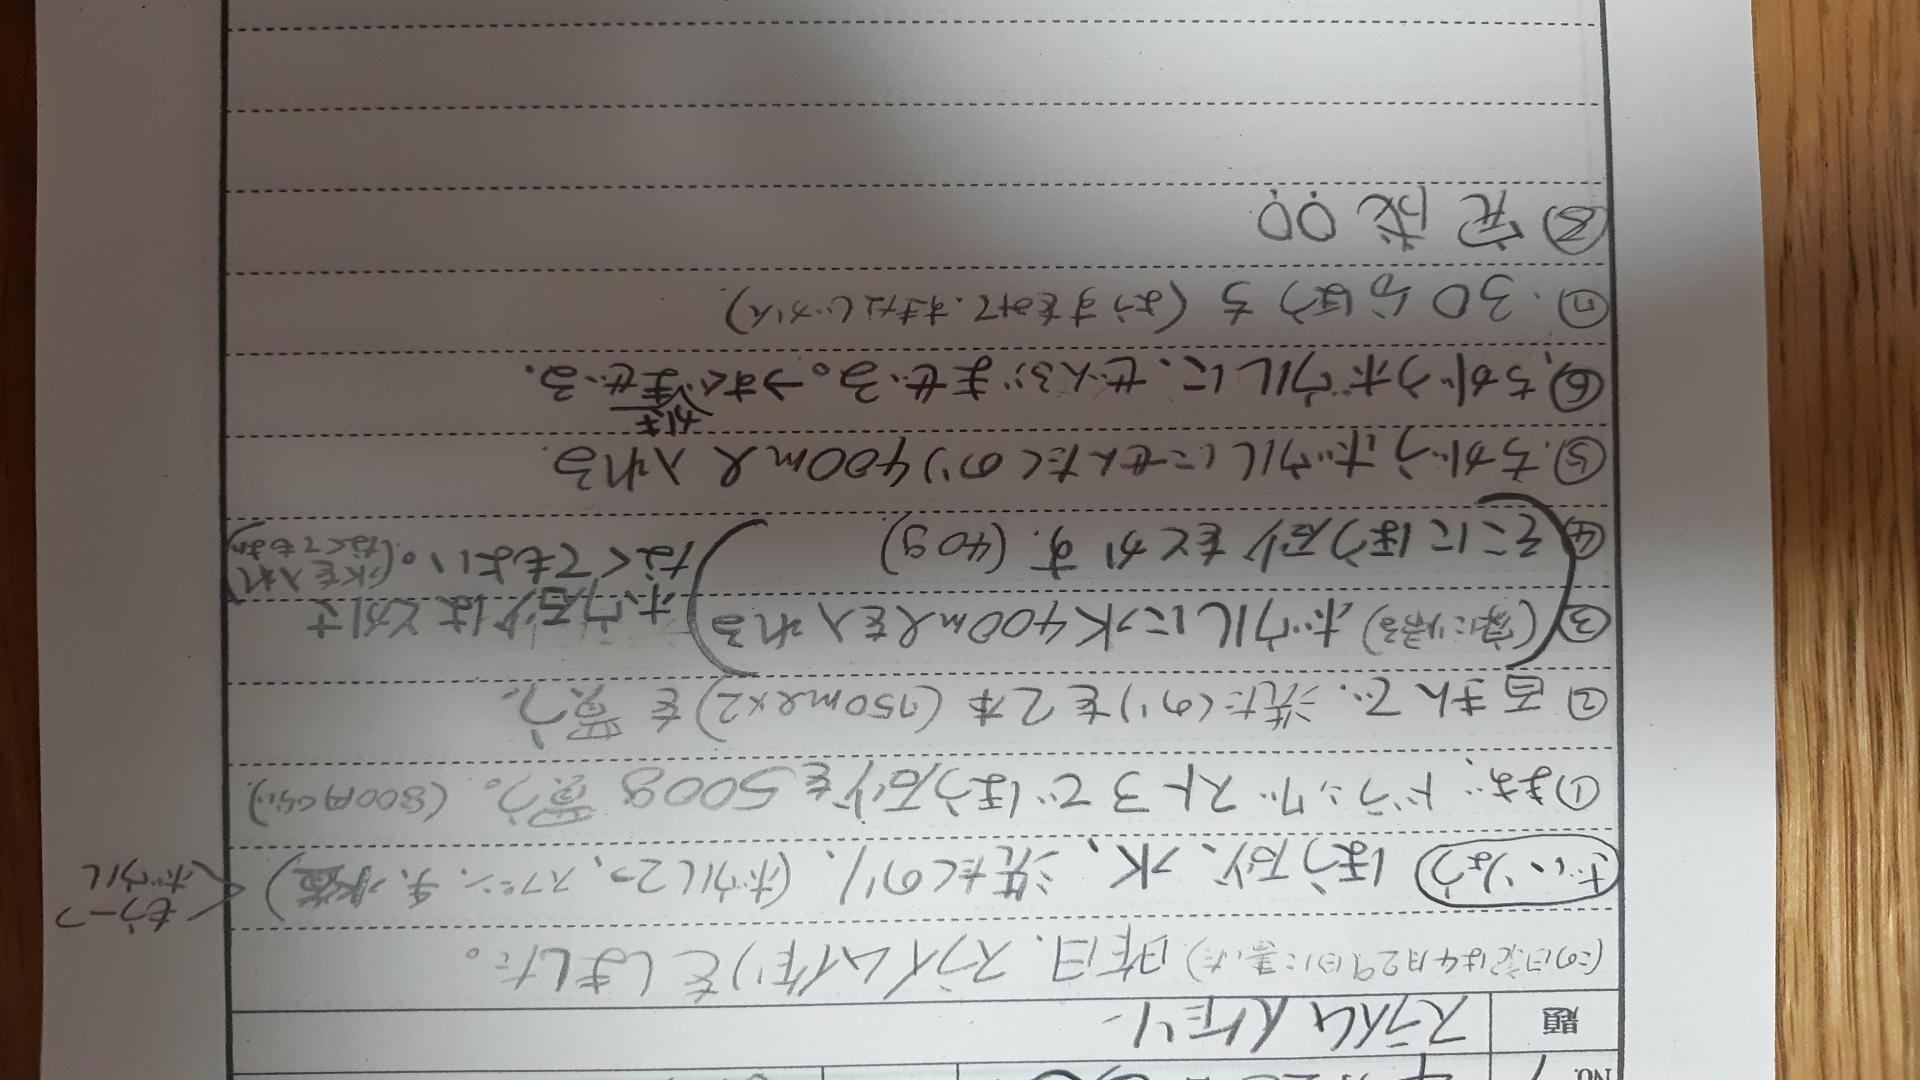 No. 1
題 スライム作り
(この日記は4月29日に書いた) 昨日、スライム作りをしました。
ざいりょう ほう砂、水、洗たくのり、(ボウル2つ、スプーン、手、)
もう一つ
ボウル
①まず、ドラッグストアでほう砂を500g買う。(800円くらい)
②百きんで、洗たくのりを2本(750ml×2)を買う。
③(家に帰る)ボウルに水400mlを入れる
④そこにほう砂をとかす.(40g)
ホウ砂はとかさ
なくてもよい。(水を入れ
なくてもよい)
⑤.ちがうボウルにせんたくのり400ml入れる
⑥、ちがうボウルに、ぜんぶまぜる。→すぐまぜる.
⑦.30分ほうち(ようすをみて、すきなじかん)
⑧完成